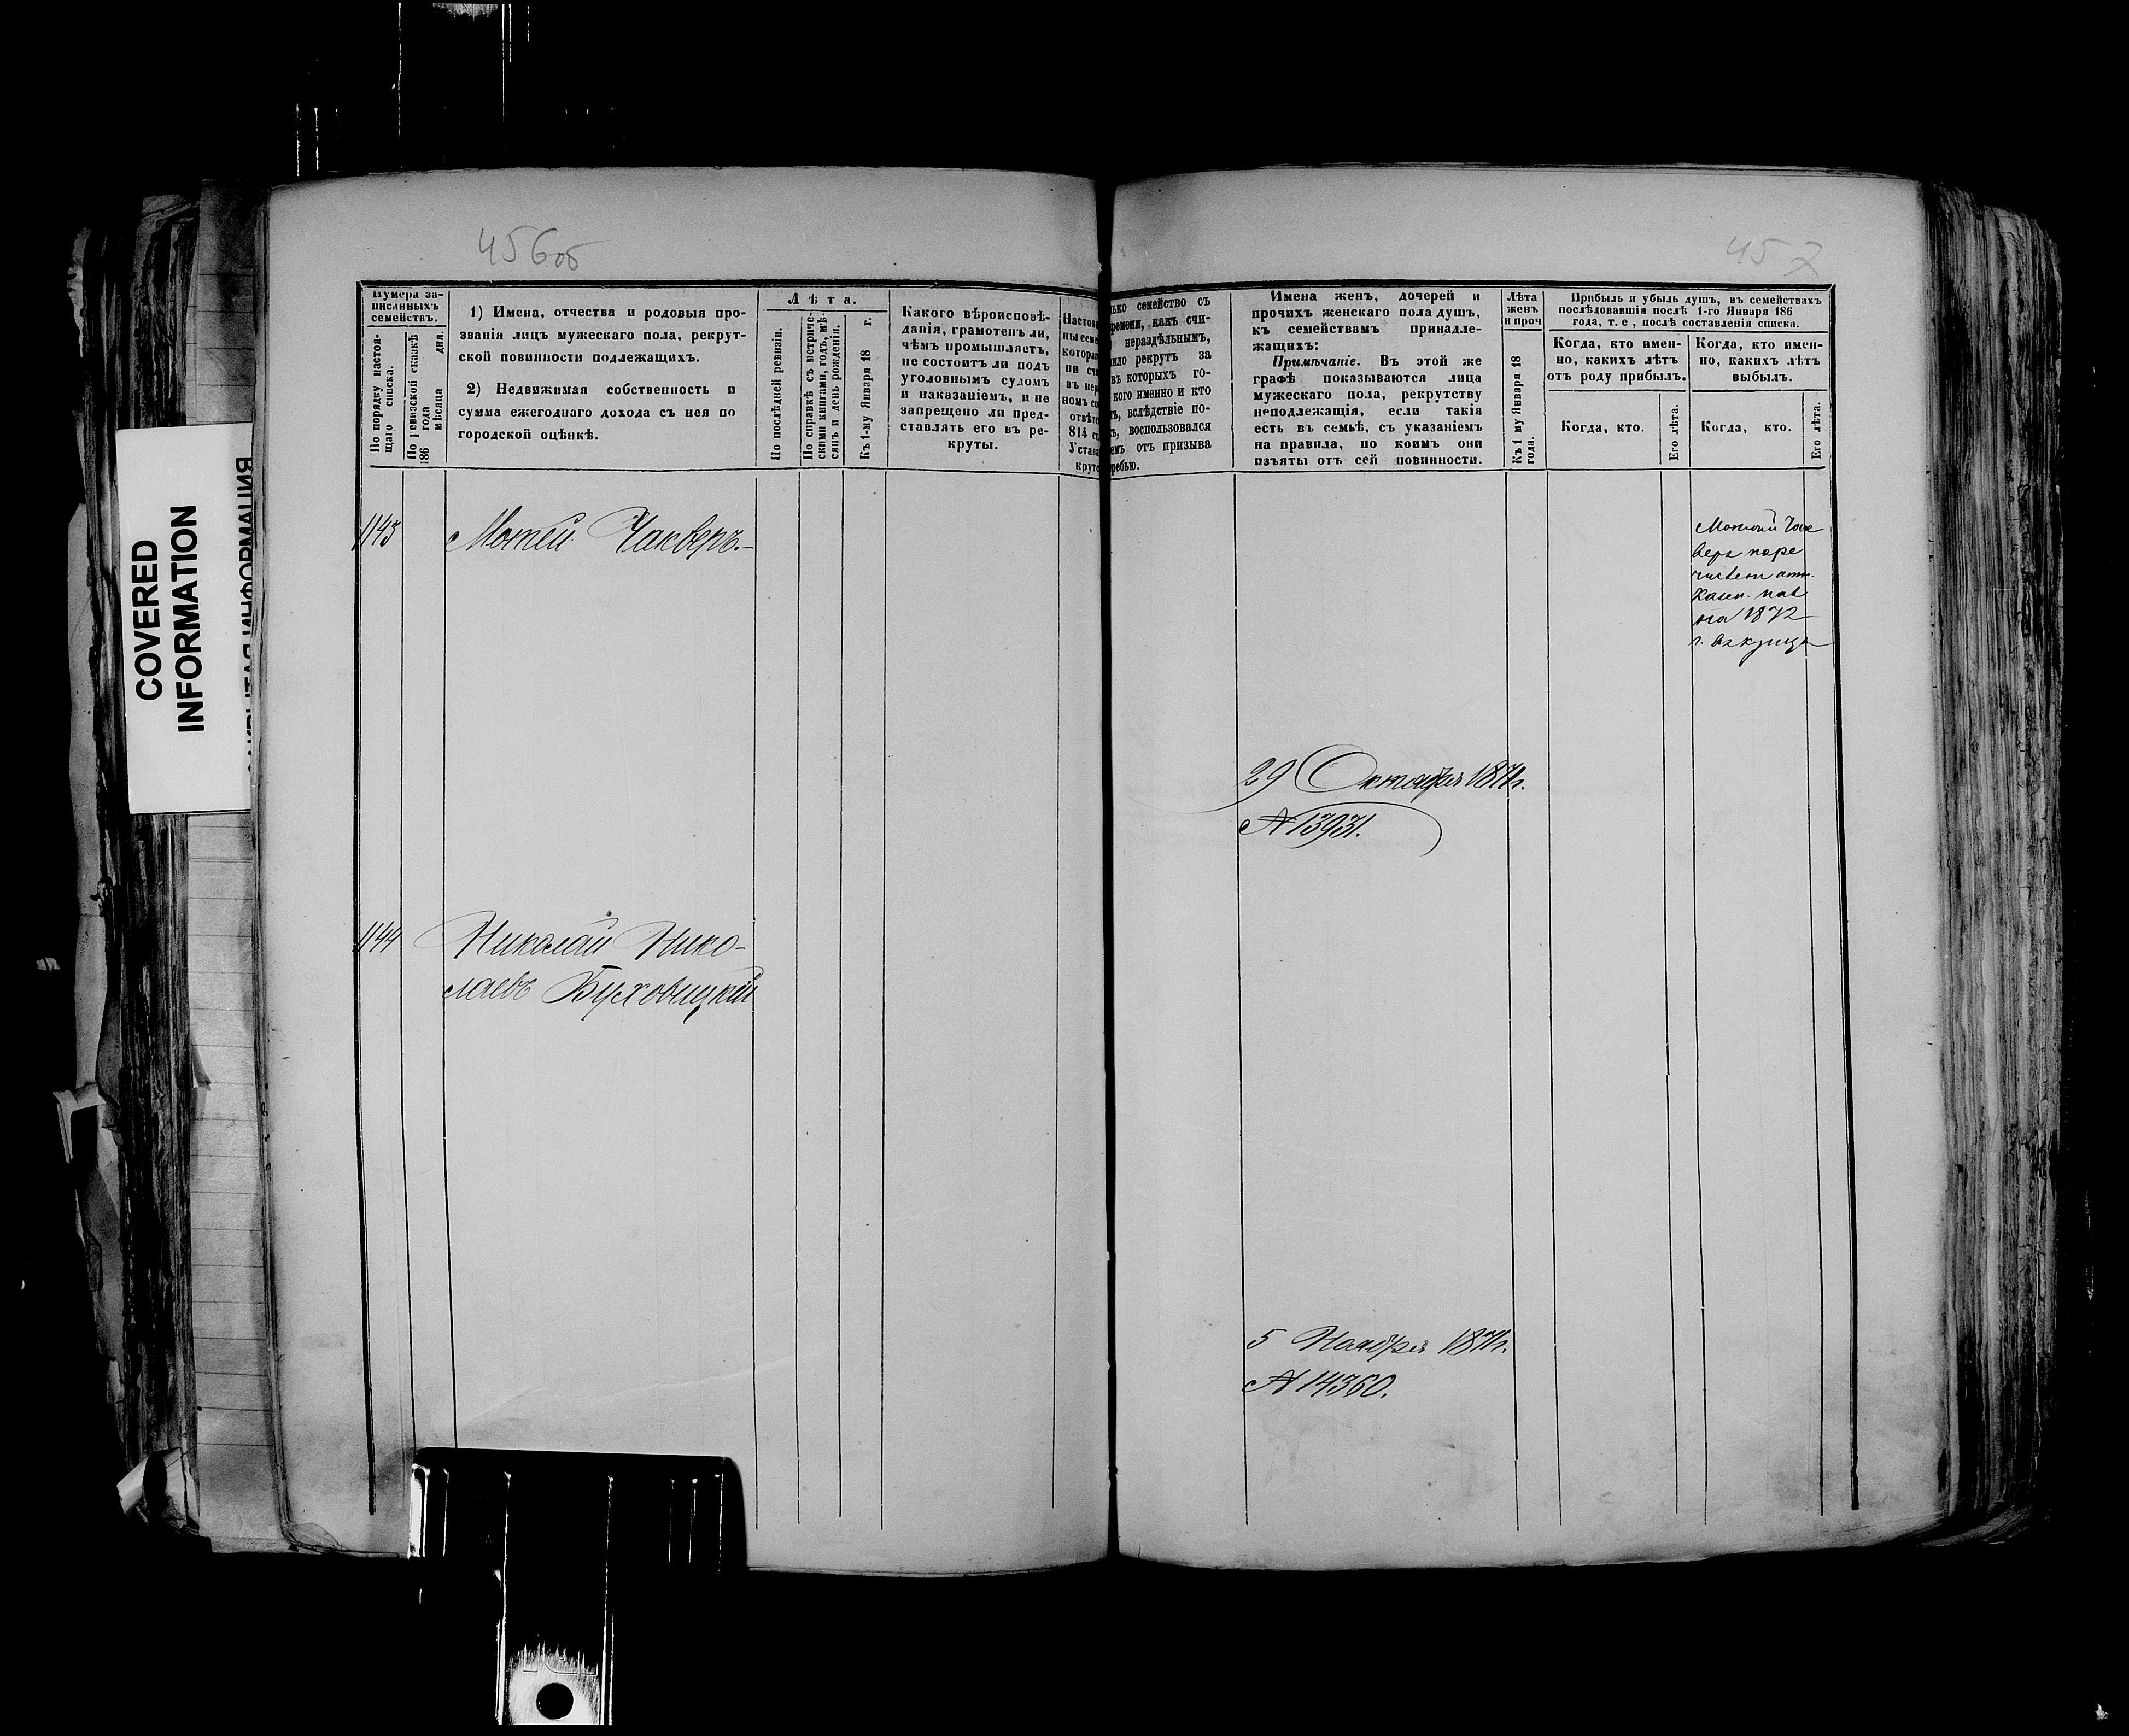 456об
457
COVERED
INFORMATION
ИНФОРМАЦИЯ
Нумера за-
писанныхъ
семействъ.
По порядку настоя-
щаго списка.
По ревизской сказкѣ
186 года
мѣсяца дня.
1) Имена, отчества и родовыя про-
званія лицъ мужескаго пола, рекрут-
ской повинности подлежащихъ.
2) Недвижимая собственность и
сумма ежегоднаго дохода съ нея по
городской оцѣнкѣ.
Лѣта.
По послѣдней ревизіи.
По справкѣ съ метриче-
скими книгами, годъ, мѣ-
сяцъ и день рожденія.
Къ 1-му Января 18 г.
Какого вѣроисповѣ-
данія, грамотенъ ли,
чѣмъ промышляетъ,
не состоитъ ли подъ
уголовнымъ судомъ
и наказаніемъ, и не
запрещено ли пред-
ставлять его въ ре-
круты.
семейство съ
какъ счи-
нераздѣльнымъ,
рекрутъ за
въ которыхъ го-
кого именно и кто
вслѣдствіе по-
воспользовался
отъ призыва
Имена женъ, дочерей и
прочихъ женскаго пола душъ,
къ семействамъ принадле-
жащихъ:
Примѣчаніе. Въ этой же
графѣ показываются лица
мужескаго пола, рекрутству
неподлежащія, если такія
есть въ семьѣ, съ указаніемъ
на правила, по коимъ они
изъяты отъ сей повинности.
Лѣта
женъ
и проч
Къ 1 му Января 18
года.
Прибыль и убыль душъ, въ семействахъ
послѣдовавшія послѣ 1-го Января 186
года, т. е, послѣ составленія списка.
Когда, кто имен-
но, какихъ лѣтъ
отъ роду прибылъ.
Когда, кто.
Его лѣта.
Когда, кто имен-
но, какихъ лѣтъ
выбылъ.
Когда, кто.
Его лѣта.
1143
Мотей Чакверъ.
29 Октября 1871г.
№ 13931.
1144
Николай Нико-
лаевъ Буховицкій
5 Ноября 1871г.
№ 14360.